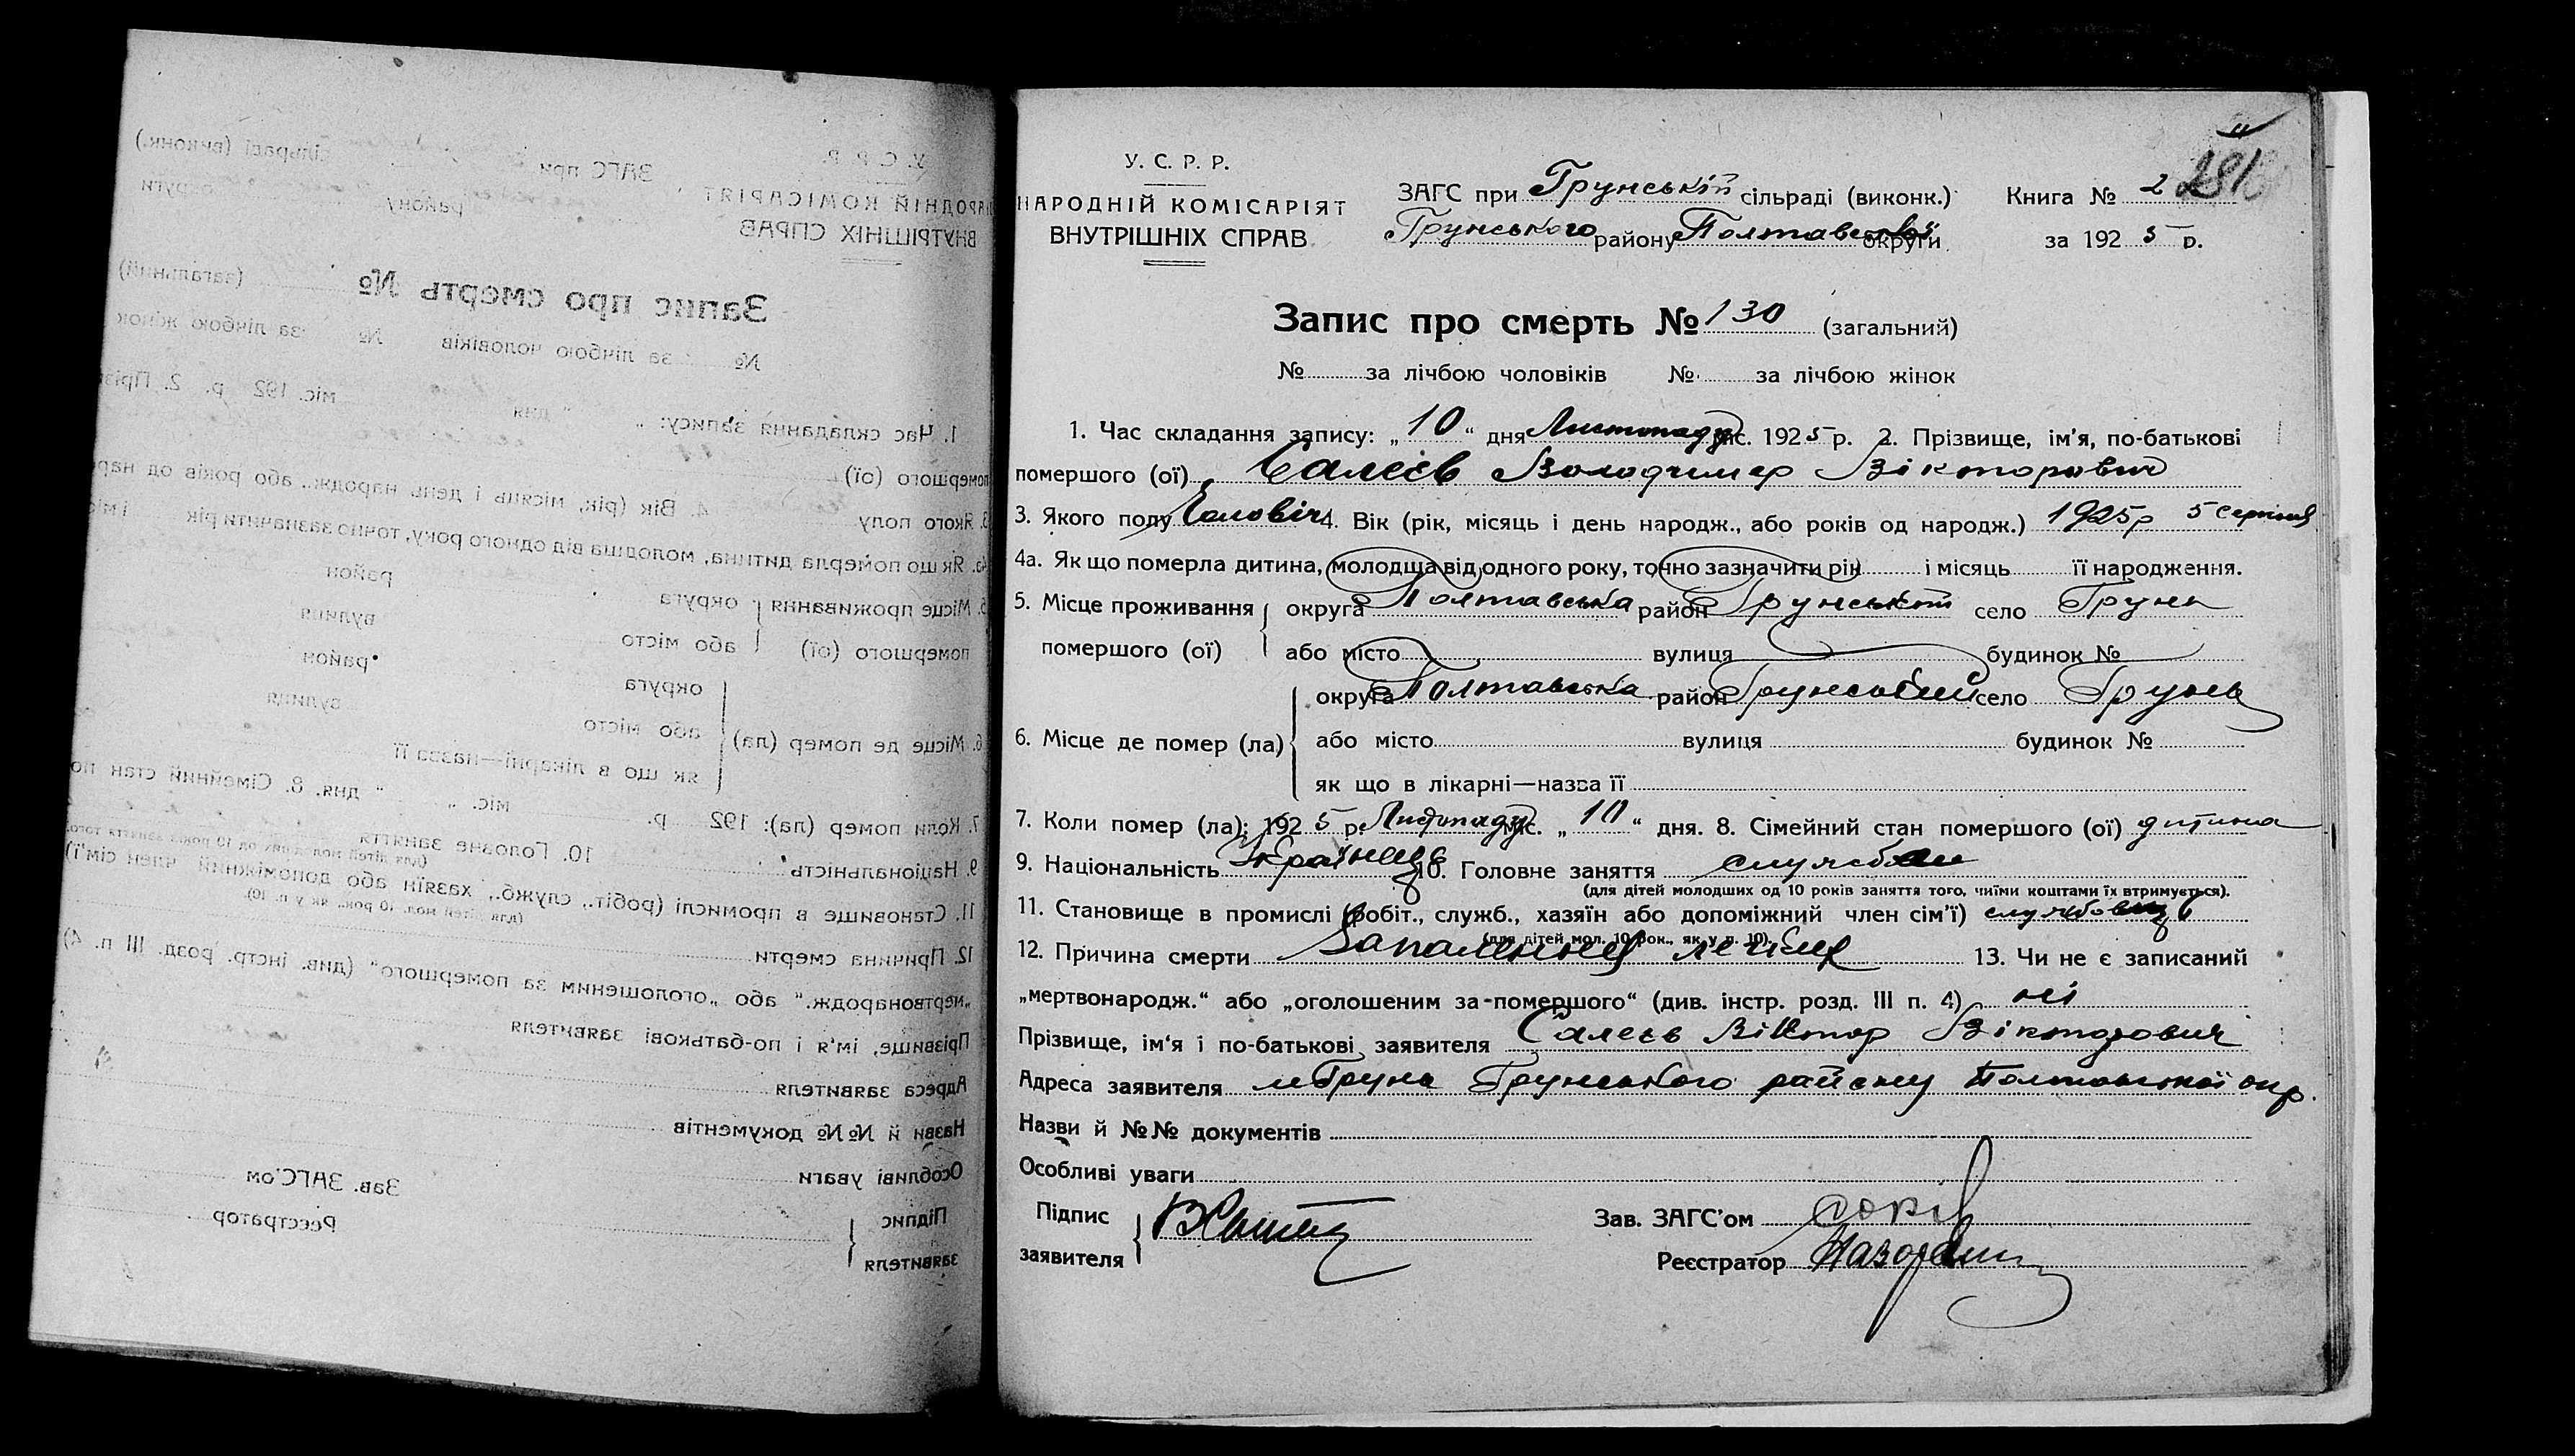 У. С. Р. Р.
НАРОДНІЙ КОМІСАРІЯТ
ВНУТРІШНІХ СПРАВ
ЗАГС при Грунській сільраді (виконк.)
Грунського району Полтавської округи
Книга № 2 281
за 1925 р.
Запис про смерть № 130 (загальний)
№ за лічбою чоловіків № за лічбою жінок
1. Час складання запису: „10“ дня Листопаду міс. 1925 р. 2. Прізвище, ім'я, по-батькові
помершого (ої) Салєєв Володимер Вікторович
3. Якого полу Чоловіч 4. Вік (рік, місяць і день народж., або років од народж.) 1925р 5 серпня
4а. Як що померла дитина, молодща від одного року, точно зазначити рік і місяць її народження.
5. Місце проживання помершого (ої) округа Полтавська район Грунський село Грунь
або місто вулиця будинок №
6. Місце де помер (ла) округа Полтавська район Грунський село Грунь
або місто вулиця будинок №
як що в лікарні—назва її
7. Коли помер (ла): 1925 р. Листопаду міс. „10“ дня. 8. Сімейний стан помершого (ої) дитина
9. Національність Українець 10. Головне заняття службов
(для дітей молодших од 10 років заняття того, чиїми коштами їх втримується).
11. Становище в промислі (робіт., служб., хазяїн або допоміжний член сім'ї) службовець
(для дітей мол. 10 рок., як у п. 10).
12. Причина смерти Запалення легень 13. Чи не є записаний
„мертвонародж.“ або „оголошеним за-помершого“ (див. інстр. розд. III п. 4) ні
Прізвище, ім'я і по-батькові заявителя Салєєв Віктор Вікторович
Адреса заявителя м Грунь Грунського району Полтавської окр.
Назви й №№ документів
Особливі уваги
Підпис заявителя
Зав. ЗАГС'ом
Реєстратор